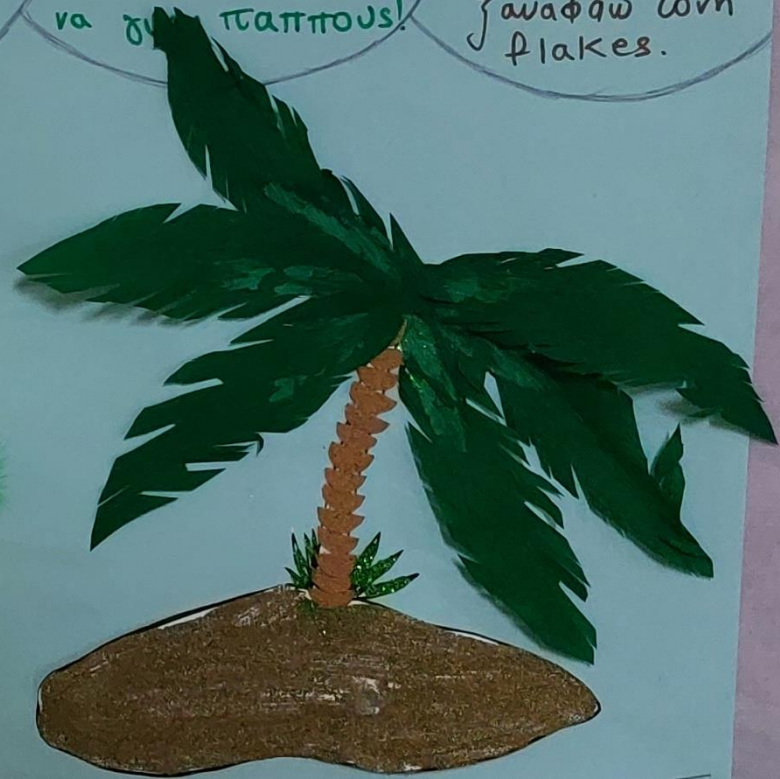 να παππους!
ξαναφαω corn
flakes.